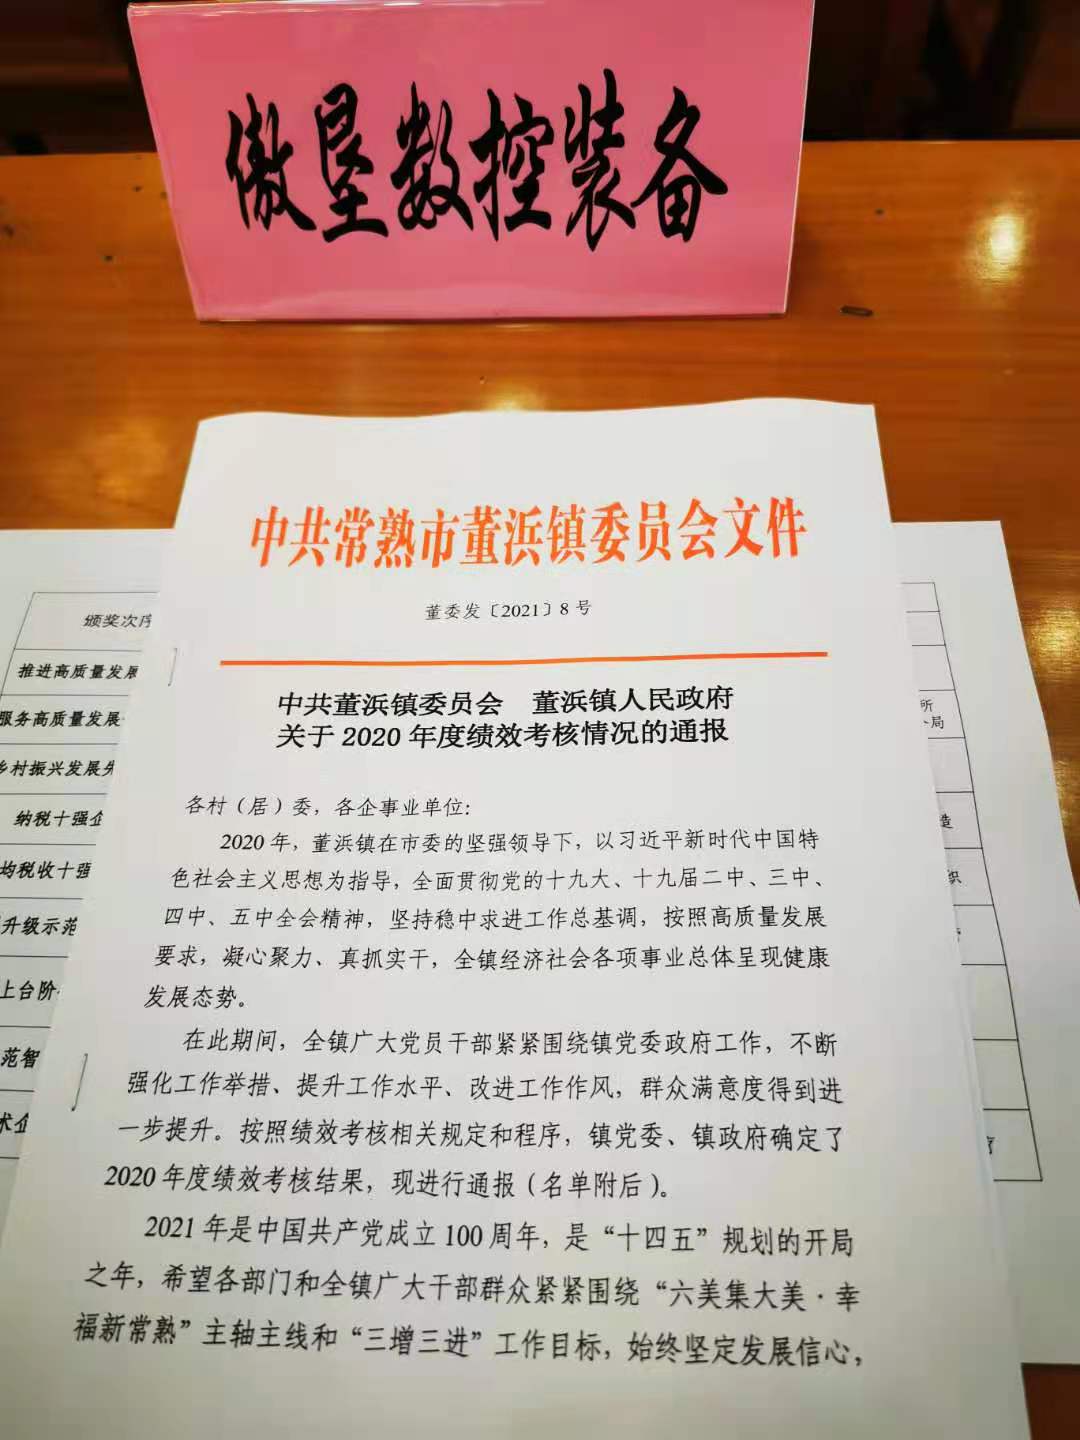 傲垦数控装备
中共常熟市董浜镇委员会文件
董委发〔2021〕8号
中共董浜镇委员会　董浜镇人民政府
关于2020年度绩效考核情况的通报
各村（居）委，各企事业单位：
2020年，董浜镇在市委的坚强领导下，以习近平新时代中国特
色社会主义思想为指导，全面贯彻党的十九大、十九届二中、三中、
四中、五中全会精神，坚持稳中求进工作总基调，按照高质量发展
要求，凝心聚力、真抓实干，全镇经济社会各项事业总体呈现健康
发展态势。
在此期间，全镇广大党员干部紧紧围绕镇党委政府工作，不断
强化工作举措、提升工作水平、改进工作作风，群众满意度得到进
一步提升。按照绩效考核相关规定和程序，镇党委、镇政府确定了
2020年度绩效考核结果，现进行通报（名单附后）。
2021年是中国共产党成立100周年，是“十四五”规划的开局
之年，希望各部门和全镇广大干部群众紧紧围绕“六美集大美·幸
福新常熟”主轴主线和“三增三进”工作目标，始终坚定发展信心，
颁奖次序
推进高质量发展
服务高质量发展
乡村振兴发展先
纳税十强企
均税收十强
升级示范
上台阶
范智
术企
所
局
造
织